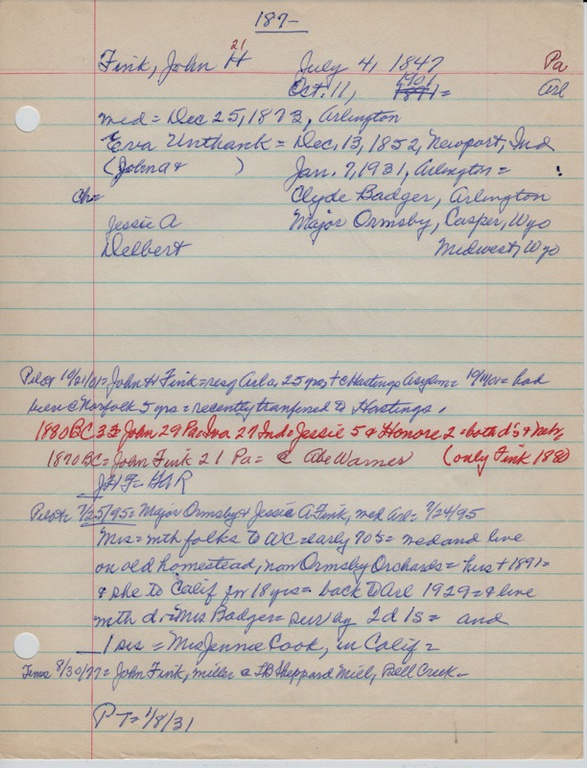 187-
21
Fink, John H July 4, 1847 Pa
Oct. 11, 1901 1891= Arl
med = Dec 25, 1873, Arlington
Eva Unthank = Dec, 13, 1852, Newport, Ind
(John a & ) Jan. 7, 1931, Arlington =
Ch= Clyde Badger, Arlington
Jessie A Major Ormsby, Casper, Wyo
Delbert Midwest, Wyo
Pilot 10/21/01= John H Fink = resq Arl a, 25 yrs, + @ Hastings Asylum = 10/11/01 = had
been @ Norfolk 5 yrs = recently tranfered to Hastings,
1880 BC 33 John 29 Pa = Iva 27 Ind = Jessie 5 & Honore 2 = both d's & Nebr,
1870 BC = John Fink 21 Pa = @ Abe Warner (only Fink 1880
JHF = GAR
Pilot 7/25/95 = Major Ormsby & Jessie A Fink, med Arl = 7/24/95
Mrs = with folks to WC = early 70s = med and live
on old homestead, now Ormsby Orchards = hus + 1891 =
& she to Calif for 18 yrs = back to Arl 1929 = & live
with d = Mrs Badger = sur by 2d 1s = and
1 sis = Mrs Jennie Cook, in Calif =
Times 8/30/77 = John Fink, miller @ Sheppard Mill, Bell Creek =
P T = 1/8/31